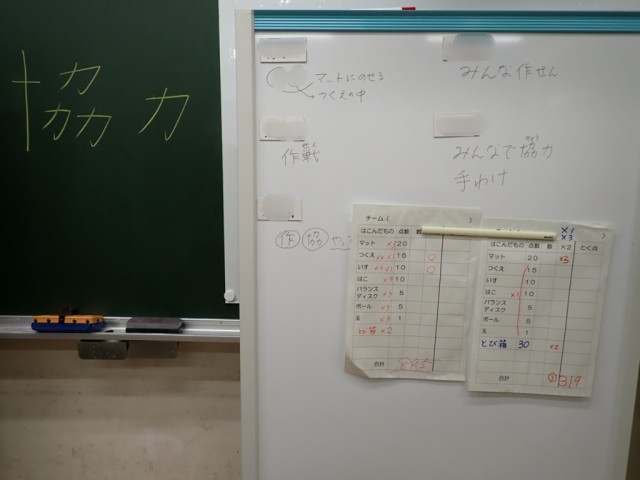 協力
マートにのせる
つくえの中
みんな作せん
作戦
せん
みんなで協力
きょう
手わけ
作 協
チーム（ ）
はこんだもの 点数 数
マット 20
つくえ 15 0
いす 10 0
はこ 10
バランスディスク 5
ボール 5
1
とび箱 ×2
合計
×1
×3
はこんだもの 点数 数 ×2 とく点
マット 20 ×3
つくえ 15
いす 10
はこ ×1 10
バランスディスク 5
ボール 5
1
とび箱 30 ×2
合計 319